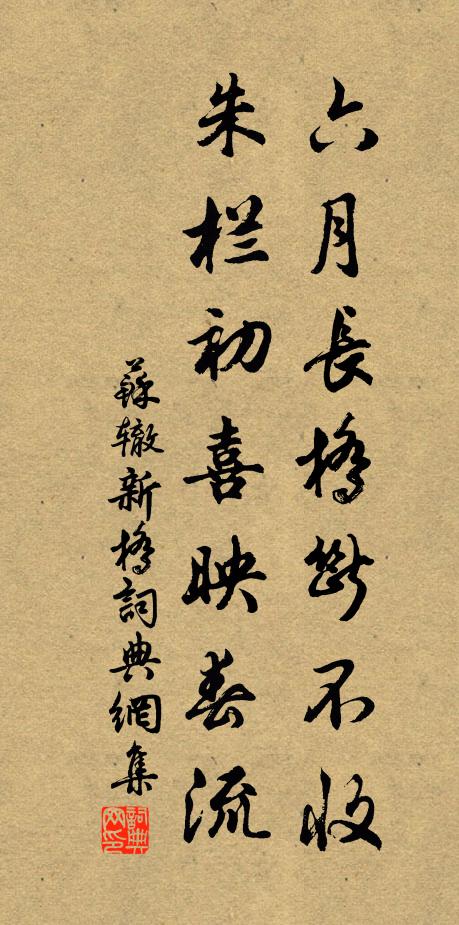 六月長橋斷不收
朱栏初喜映春流
蘇辙新橋詞典網集
詞典網印